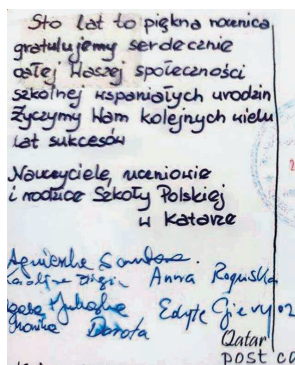 Sto lat to piękna rocznica,
gratulujemy serdecznie
całej Waszej społeczności
szkolnej wspaniałych urodzin
Życzymy Wam kolejnych wielu
lat sukcesów
Nauczyciele, uczniowie
i rodzice Szkoły Polskiej
w Katarze
Agnieszka
Anna Roguska
Dorota Edyta
Qatar
post ca